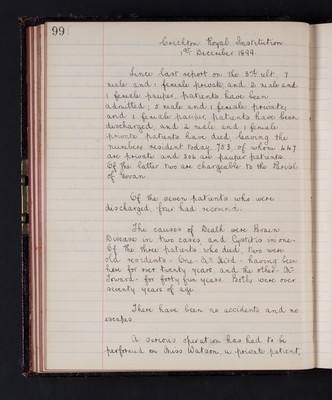 99
Crichton Royal Institution
1st December 1899.
Since last report on the 3rd ult. 7
male and 1 female private, and 2 male and
1 female pauper patients have been
admitted; 5 male and 1 female private,
and 1 female pauper, patients have been
discharged; and 2 male and 1 female
private patients have died; leaving the
numbers resident today, 753, of whom 447
are private and 306 are pauper patients.
Of the latter two are chargeable to the Parish
of Govan.
Of the seven patients who were
discharged, four had recovered.
The causes of Death were Brain
Disease in two cases and Cystitis in one.
Of the three patients who died, two were
old residents - One - Mr - having been
here for over twenty years, and the other - Mr
- for forty five years. Both were over
seventy years of age.
There have been no accidents and no
escapes.
A serious operation has had to be
performed on Miss Watson, a private patient,